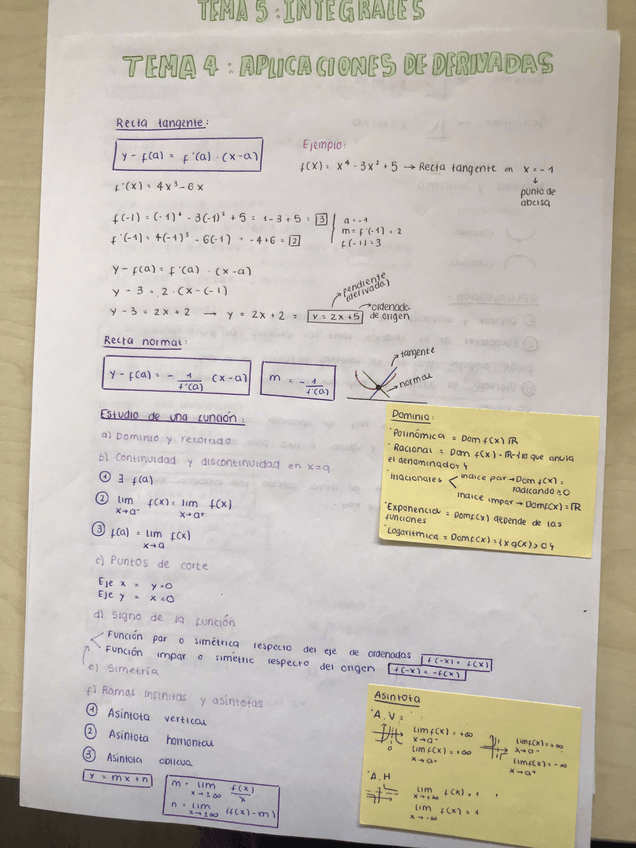 TEMA 5: INTEGRALES
TEMA 4: APLICACIONES DE DERIVADAS
Recta tangente:
y - f(a) = f'(a) · (x-a)
Ejemplo:
f(x) = x⁴ - 3x² + 5 → Recta tangente en x = -1
↓
punto de
abcisa
f'(x) = 4x³ - 6x
f(-1) = (-1)⁴ - 3(-1)² + 5 = 1 - 3 + 5 = 3
f'(-1) = 4(-1)³ - 6(-1) = -4+6 = 2
a = -1
m = f'(-1) = 2
f(-1) = 3
y - f(a) = f'(a) · (x-a)
y - 3 = 2 · (x - (-1)
y - 3 = 2x + 2 → y = 2x + 2 = y = 2x + 5
pendiente
(derivada)
ordenada
de origen
Recta normal:
y - f(a) = - 1/f'(a) (x-a)
m = - 1/f'(a)
tangente
normal
Estudio de una función:
a) Dominio y recorrido
b) Continuidad y discontinuidad en x=a
① ∃ f(a)
② lim x→a⁻ f(x) = lim x→a⁺ f(x)
③ f(a) = lim x→a f(x)
c) Puntos de corte
Eje x = y=0
Eje y = x=0
d) Signo de la función
Función par o simétrica respecto del eje de ordenadas f(-x) = f(x)
Función impar o simétric respecto del origen f(-x) = -f(x)
e) Simetría
f) Ramas infinitas y asíntotas
① Asíntota vertical
② Asíntota horizontal
③ Asíntota oblicua
y = mx + n
m = lim x→±∞ f(x)/x
n = lim x→±∞ (f(x) - m)
Dominio:
· Polinómica = Dom f(x) ℝ
· Racional = Dom f(x) = ℝ - {lo que anula
el denominador}
· Irracionales
índice par → Dom f(x) =
radicando ≥ 0
índice impar → Dom f(x) = ℝ
· Exponencial = Dom f(x) depende de las
funciones
· Logarítmica = Dom f(x) = {x g(x) > 0}
Asíntota
· A.V =
lim f(x) = +∞
x→a⁻
lim f(x) = +∞
x→a⁺
lim f(x) = +∞
x→a⁻
lim f(x) = -∞
x→a⁺
· A.H
lim f(x) = 1
x→+∞
lim f(x) = 1
x→-∞